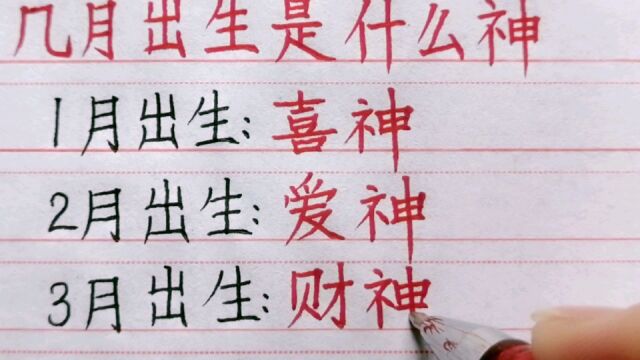 几月出生是什么神
1月出生:喜神
2月出生:爱神
3月出生:财神